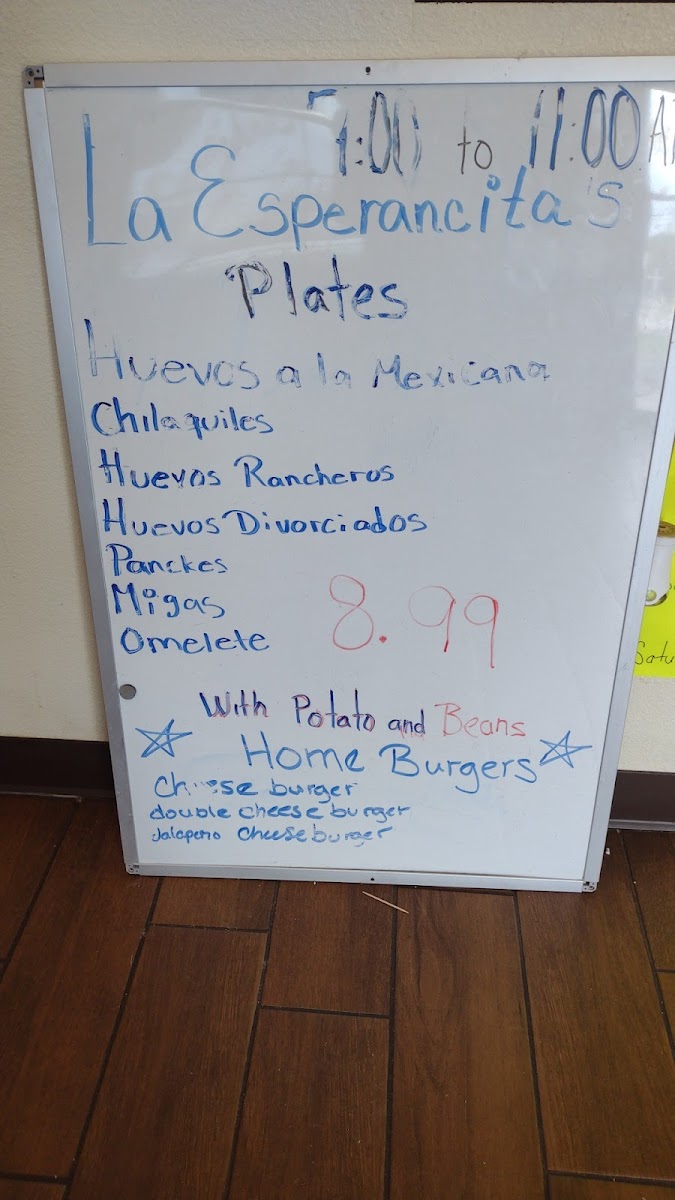 7:00 to 11:00 A
La Esperancita's
Plates
Huevos a la Mexicana
Chilaquiles
Huevos Rancheros
Huevos Divorciados
Panckes
Migas
Omelete
8.99
With Potato and Beans
Home Burgers
Cheese burger
double cheese burger
Jalapeno cheese burger
Satu